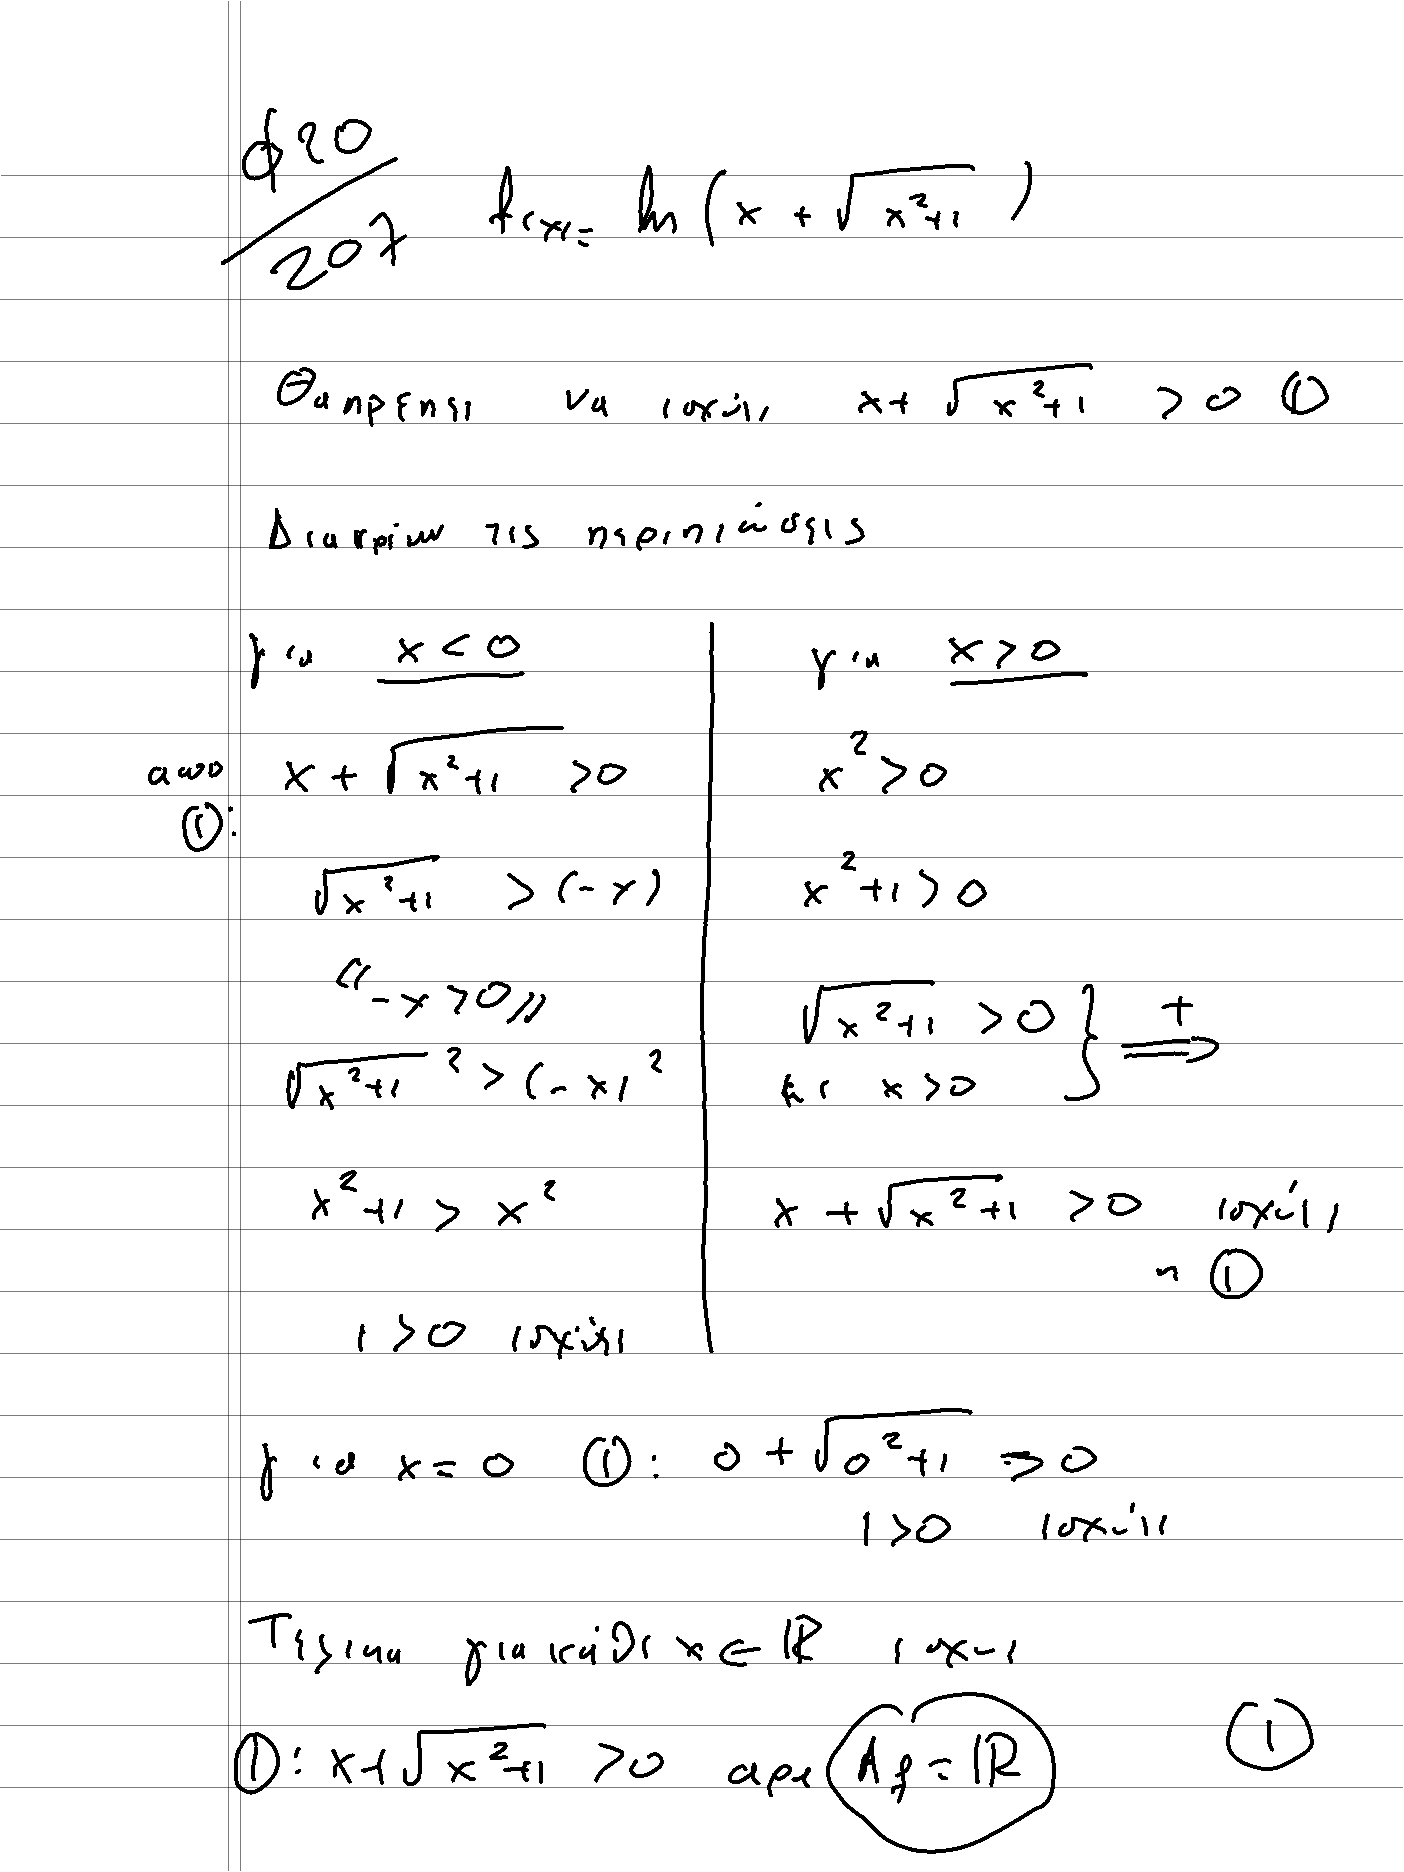 φ20/207 f(x)= ln(x + √(x²+1))
Θα πρέπει να ισχύει x + √(x²+1) > 0 ①
Διακρίνω τις περιπτώσεις
για x < 0
από ①: x + √(x²+1) > 0
√(x²+1) > (-x)
"-x > 0"
√(x²+1)² > (-x)²
x²+1 > x²
1 > 0 ισχύει
για x > 0
x² > 0
x²+1 > 0
√(x²+1) > 0 } + ⟹
κι x > 0
x + √(x²+1) > 0 ισχύει
η ①
για x = 0 ①: 0 + √(0²+1) > 0
1 > 0 ισχύει
Τελικα για κάθε x ∈ ℝ ισχυει
①: x + √(x²+1) > 0 αρα A_f = ℝ
①